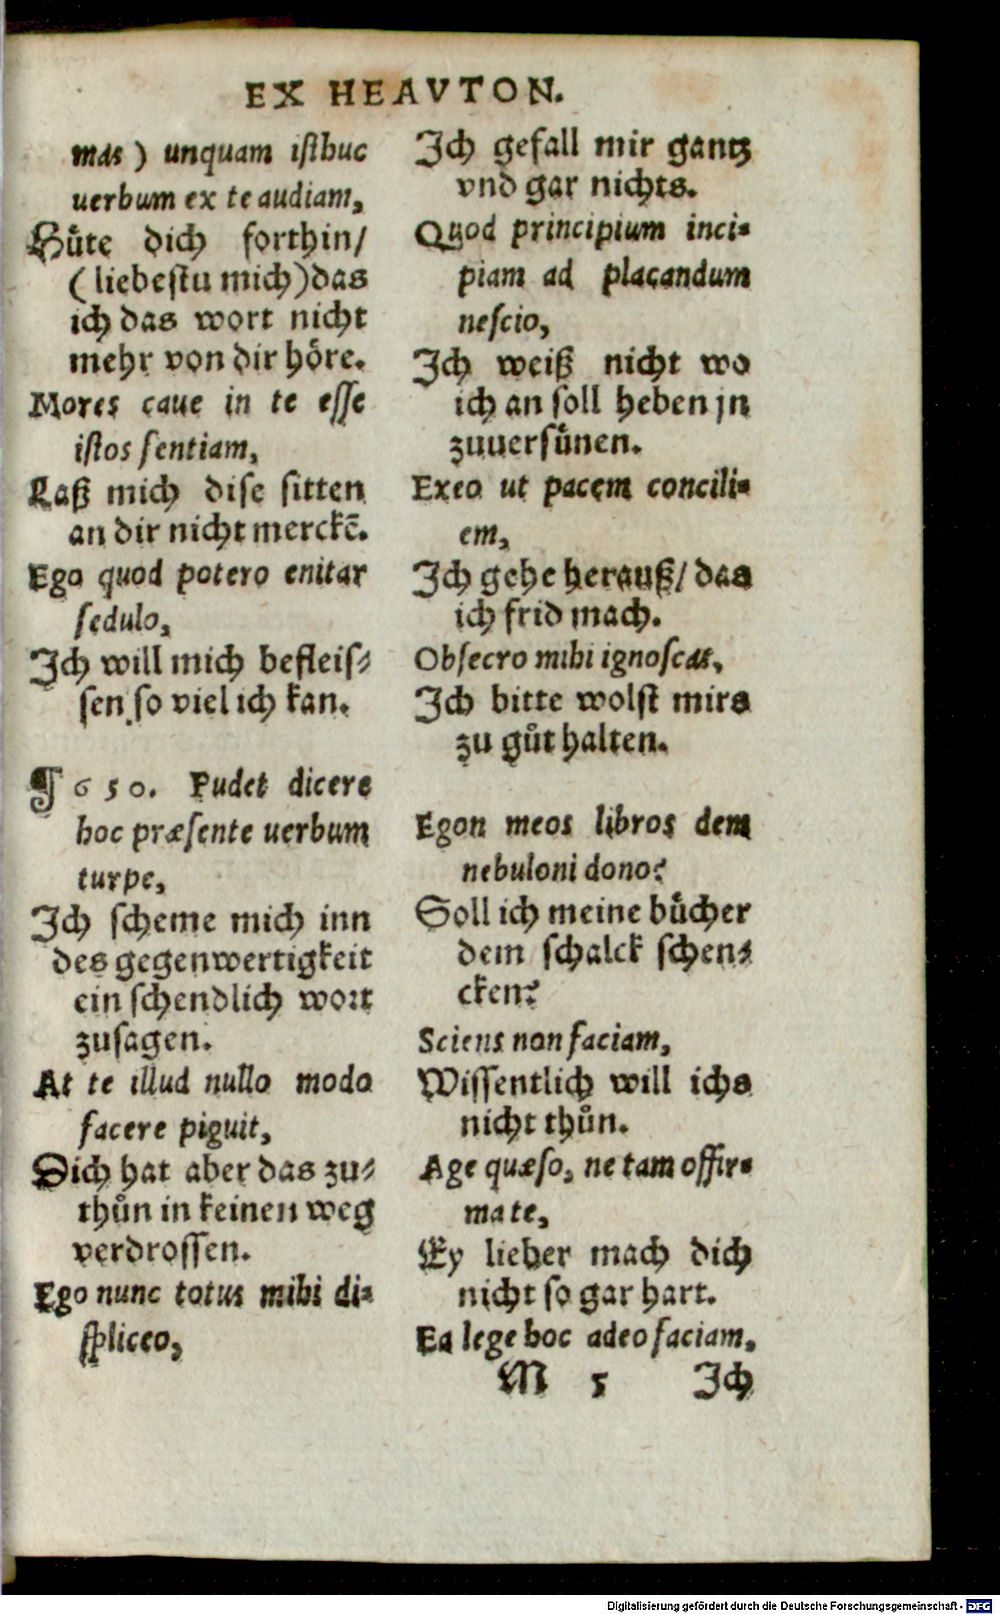 EX HEAVTON.
mas) unquam isthuc
uerbum ex te audiam,
Hůte dich forthin/
(liebestu mich) das
ich das wort nicht
mehr von dir hőre.
Mores caue in te esse
istos sentiam,
Laß mich dise sitten
an dir nicht merckē.
Ego quod potero enitar
sedulo,
Ich will mich befleis⸗
sen so viel ich kan.
¶ 650. Pudet dicere
hoc præsente uerbum
turpe,
Ich scheme mich inn
des gegenwertigkeit
ein schendlich wort
zusagen.
At te illud nullo modo
facere piguit,
Dich hat aber das zu⸗
thůn in keinen weg
verdrossen.
Ego nunc totus mihi di⸗
spliceo,
Ich gefall mir gantz
vnd gar nichts.
Quod principium inci⸗
piam ad placandum
nescio,
Ich weiß nicht wo
ich an soll heben jn
zuuersůnen.
Exeo ut pacem concili⸗
em,
Ich gehe herauß/ das
ich frid mach.
Obsecro mihi ignoscas,
Ich bitte wolst mirs
zu gůt halten.
Egon meos libros dem
nebuloni dono?
Soll ich meine bůcher
dem schalck schen⸗
cken?
Sciens non faciam,
Wissentlich will ichs
nicht thůn.
Age quæso, ne tam offir⸗
ma te,
Ey lieber mach dich
nicht so gar hart.
Ea lege hoc adeo faciam,
M 5 Ich
Digitalisierung gefördert durch die Deutsche Forschungsgemeinschaft - DFG